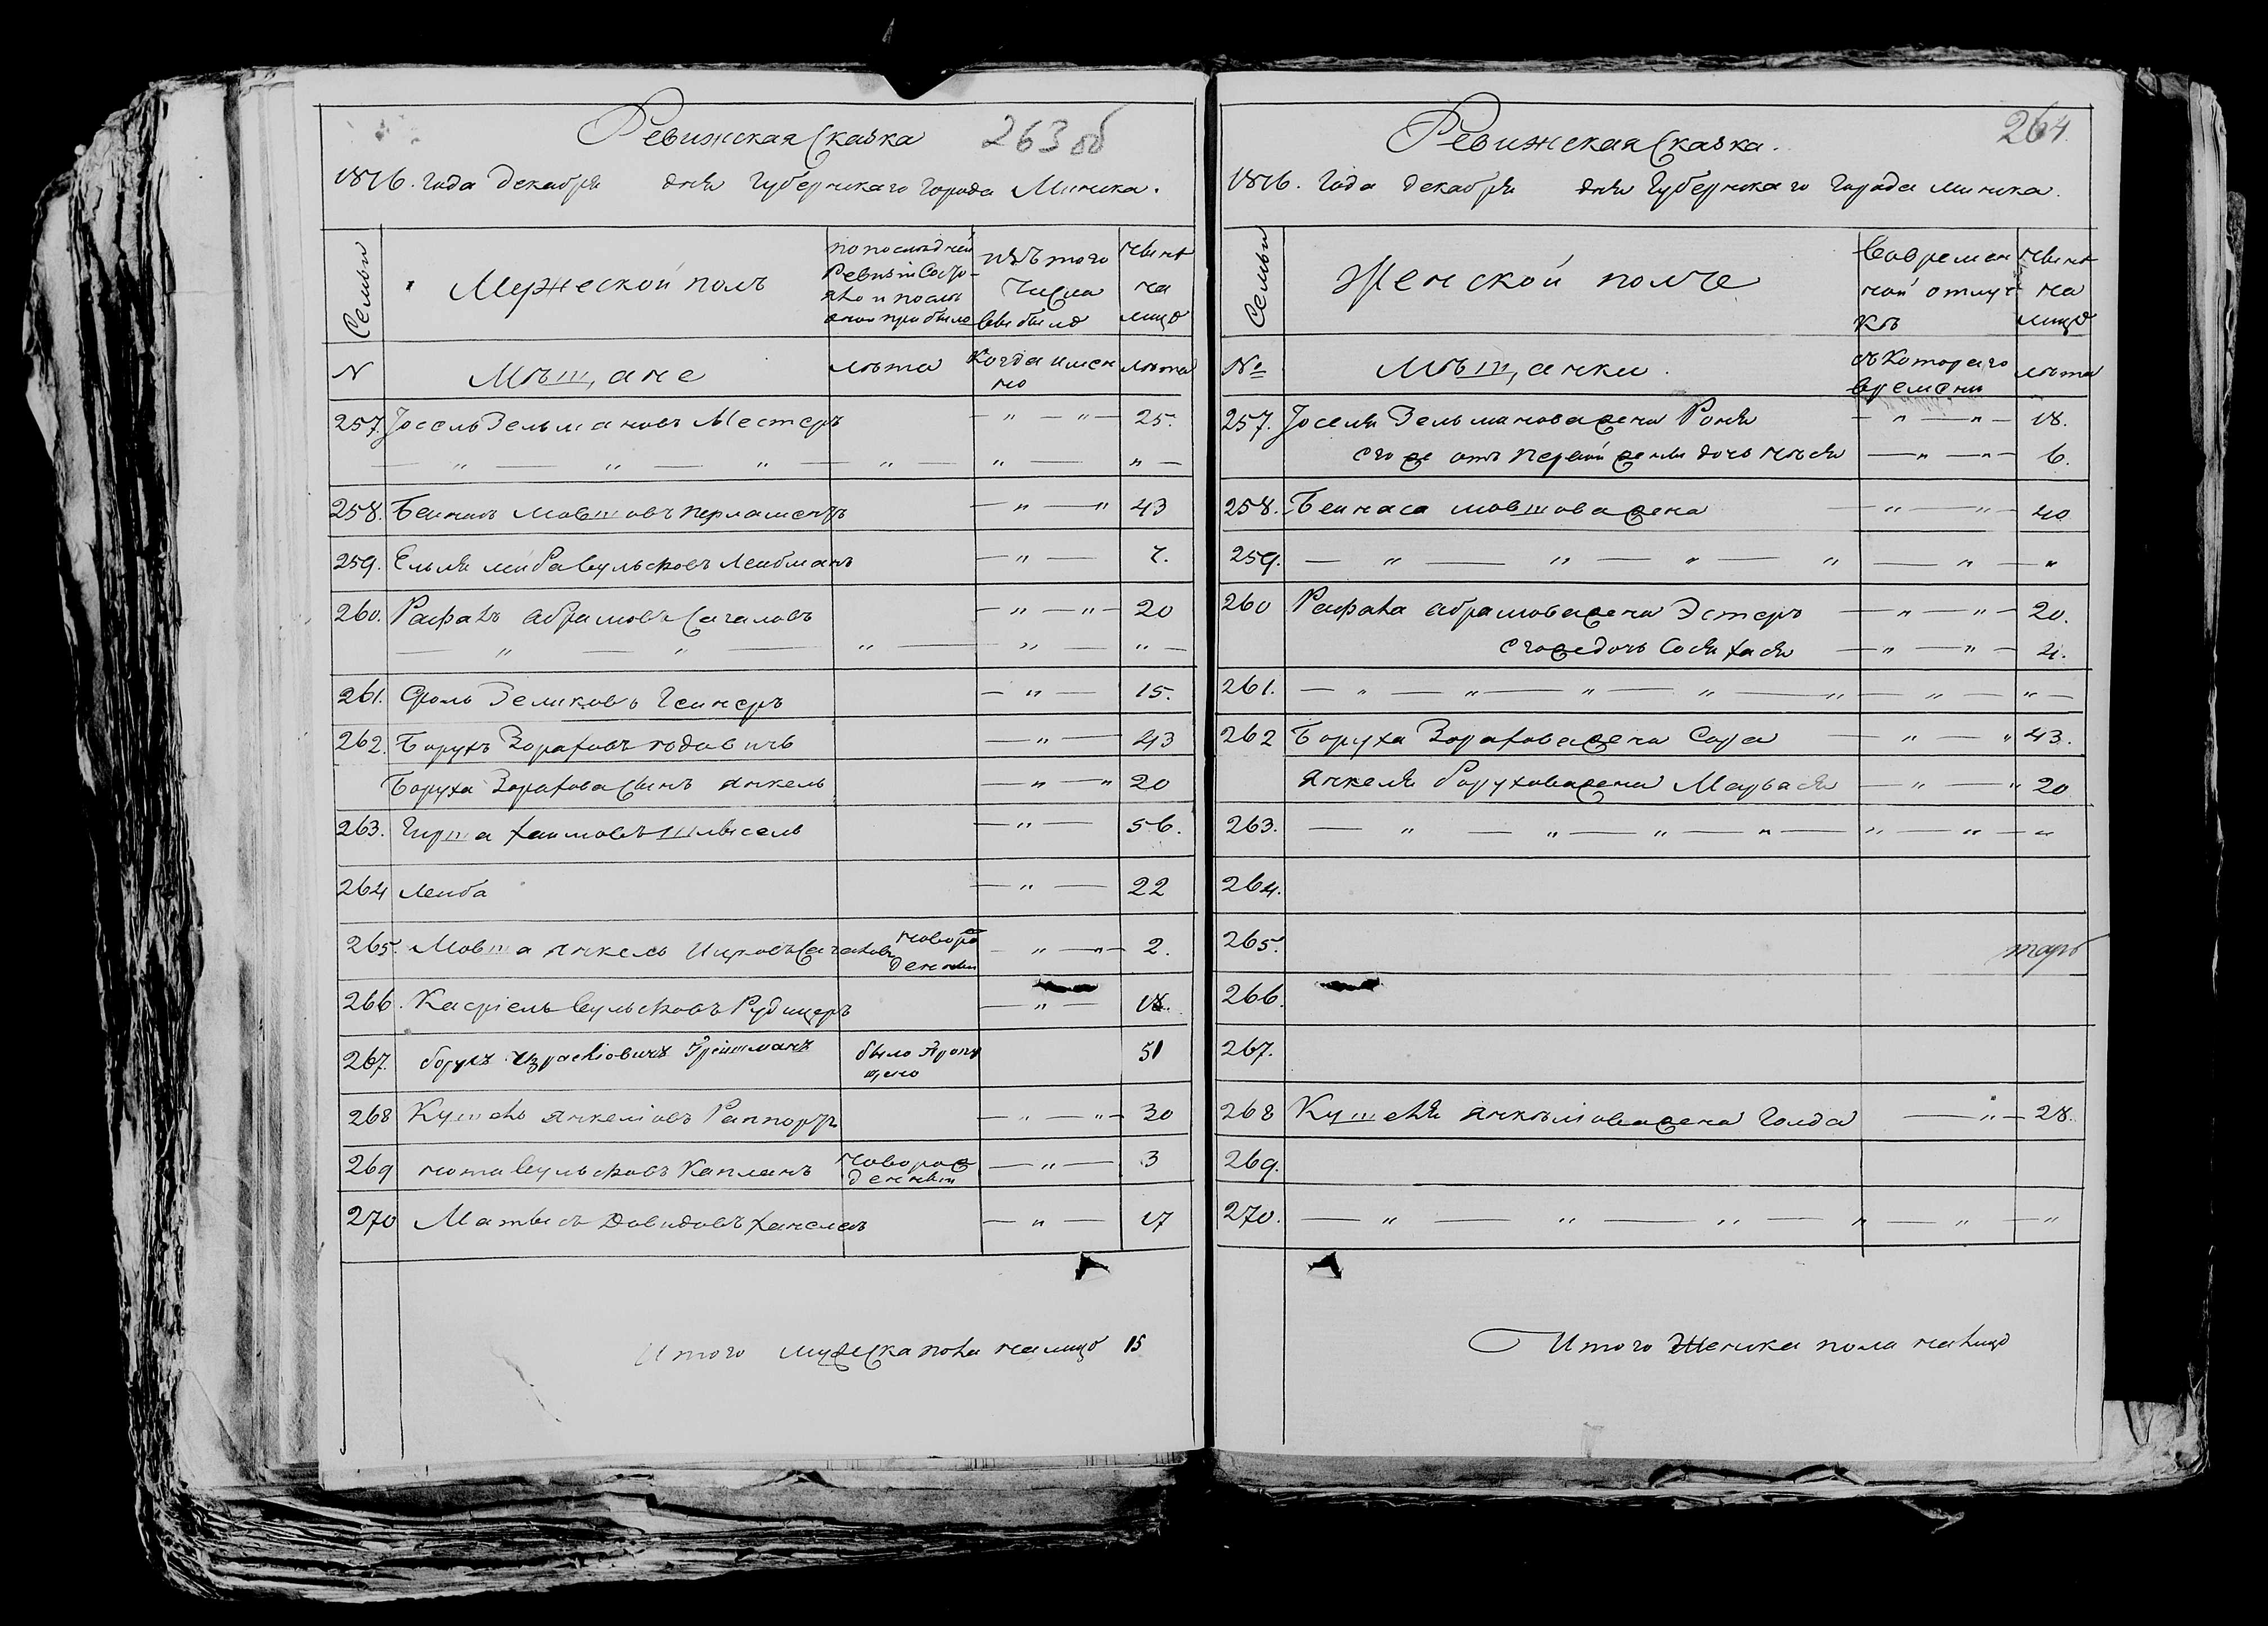 Ревижская Сказка 263 об
1816. года Декабря дня Губернскаго города Минска.
Семьи
Мужеской полъ
по последней Ревизіи Состояло и после оной прибыло
изъ того Числа выбыло
ныне на лицо
N
Мѣщане
лѣта
Когда именно
лѣта
257. Іосель Зельмановъ Местеръ 25.
258. Беинасъ Мовшовъ Перламентъ 43
259. Ельяшива Вульфовъ Леибманъ 7.
260. Рафалъ Абрамовъ Сагаловъ 20
261. Фроль Зеликовъ Геинеръ 15.
262. Борухъ Зораховъ Юдовичъ 43
Боруха Зорахова Сынъ Янкель 20
263. Гирша Хаимовъ 56.
264 Леиба 22
265. Мовша Янкель Ицковъ Сагаловъ новорожденный 2.
266. Касріель Вульфовъ Рудицеръ 18.
267. Борухъ Израеліовичъ Фреишманъ было пропущено 51
268 Кушель Янкеліовъ Раппортъ 30
269 нота Вульфовъ Капланъ новорожденный 3
270 Матысъ Довидовъ 17
Итого мужска пола на лицо 15
Ревижская Сказка. 264.
1816. Года Декабря дня Губернскаго Города Минска.
Семьи
Женской полъ
Во временной отлучкѣ
ныне на лицо
№
Мѣщанки.
съ Котораго времени
лѣта
257. Іоселя Зельманова жена Роня 18.
его же отъ первой жены дочь 6.
258. Беинаса Мовшова жена 40
259.
260 Рафала Абрамова жена Эстеръ 20.
его же дочь Сося Хася 2.
261.
262 Боруха Зорахова жена Сора 43.
Янкеля Борухова жена Марьася 20
263.
264.
265.
266.
267.
268 Кушеля Янкеліова жена Голда 28.
269.
270.
Итого Женска пола на лицо